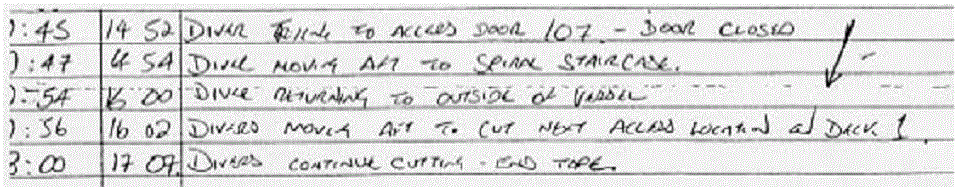 :45 14 52 DIVER TRYING TO ACCESS DOOR 107. - DOOR CLOSED
:47 14 54 DIVER MOVING AFT TO SPIRAL STAIRCASE.
:54 16 00 DIVER RETURNING TO OUTSIDE OF VESSEL
:56 16 02 DIVERS MOVING AFT TO CUT NEXT ACCESS LOCATION at DECK 1.
3:00 17 07 DIVERS CONTINUE CUTTING - END TAPE.